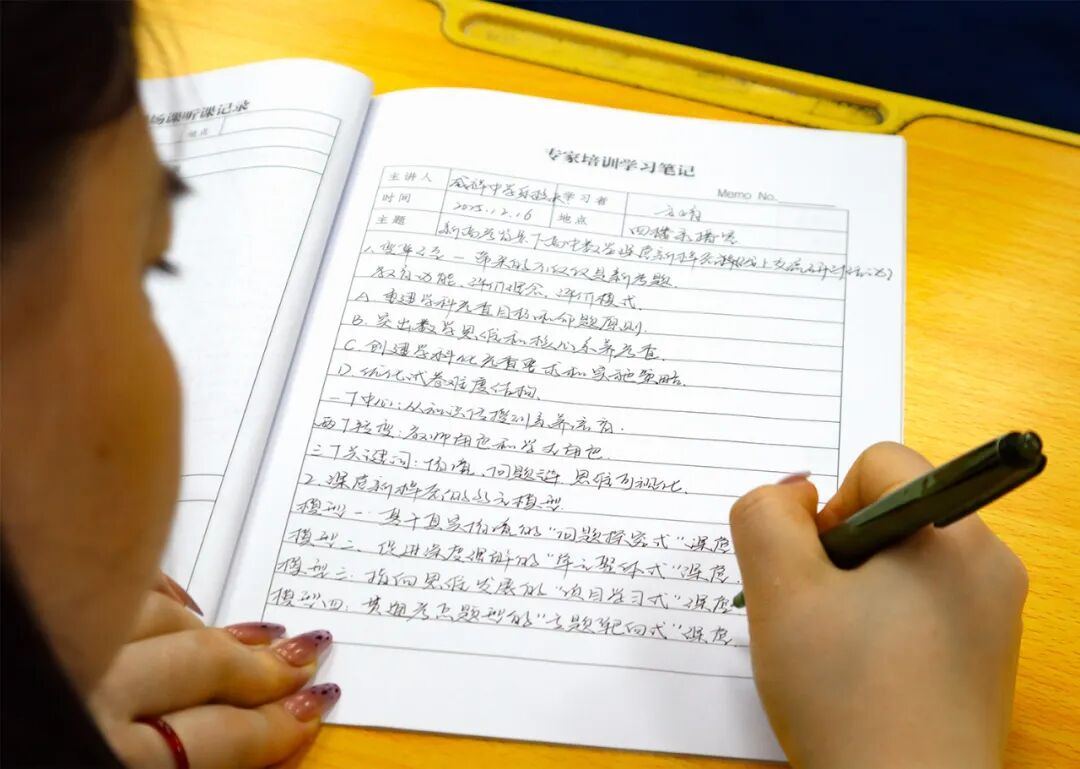 场课听课记录
地点
专家培训学习笔记
Memo No.
主讲人 学习者
时间 2025.12.16 地点
主题 新高考背景下高中数学深度新样态课堂
1. 变革之至 一 带来的不仅仅是新考题
教育功能、评价理念、评价模式
A. 重建学科考查目标和命题原则.
B. 突出数学思维和核心素养考查.
C. 创建学科化考查要求和实施策略.
D. 优化试卷难度结构.
一个中心:从知识传授到素养培育.
两个转变:教师角色和学生角色.
三个关键词:情境、问题链、思维可视化.
2. 深度新样态的 模型.
模型一:基于真实情境的"问题探究式"深度
模型二、促进深度理解的"单元整体式"深度.
模型三:指向思维发展的"项目学习式"深度
模型四:贯通考点题型的"主题靶向式"深度